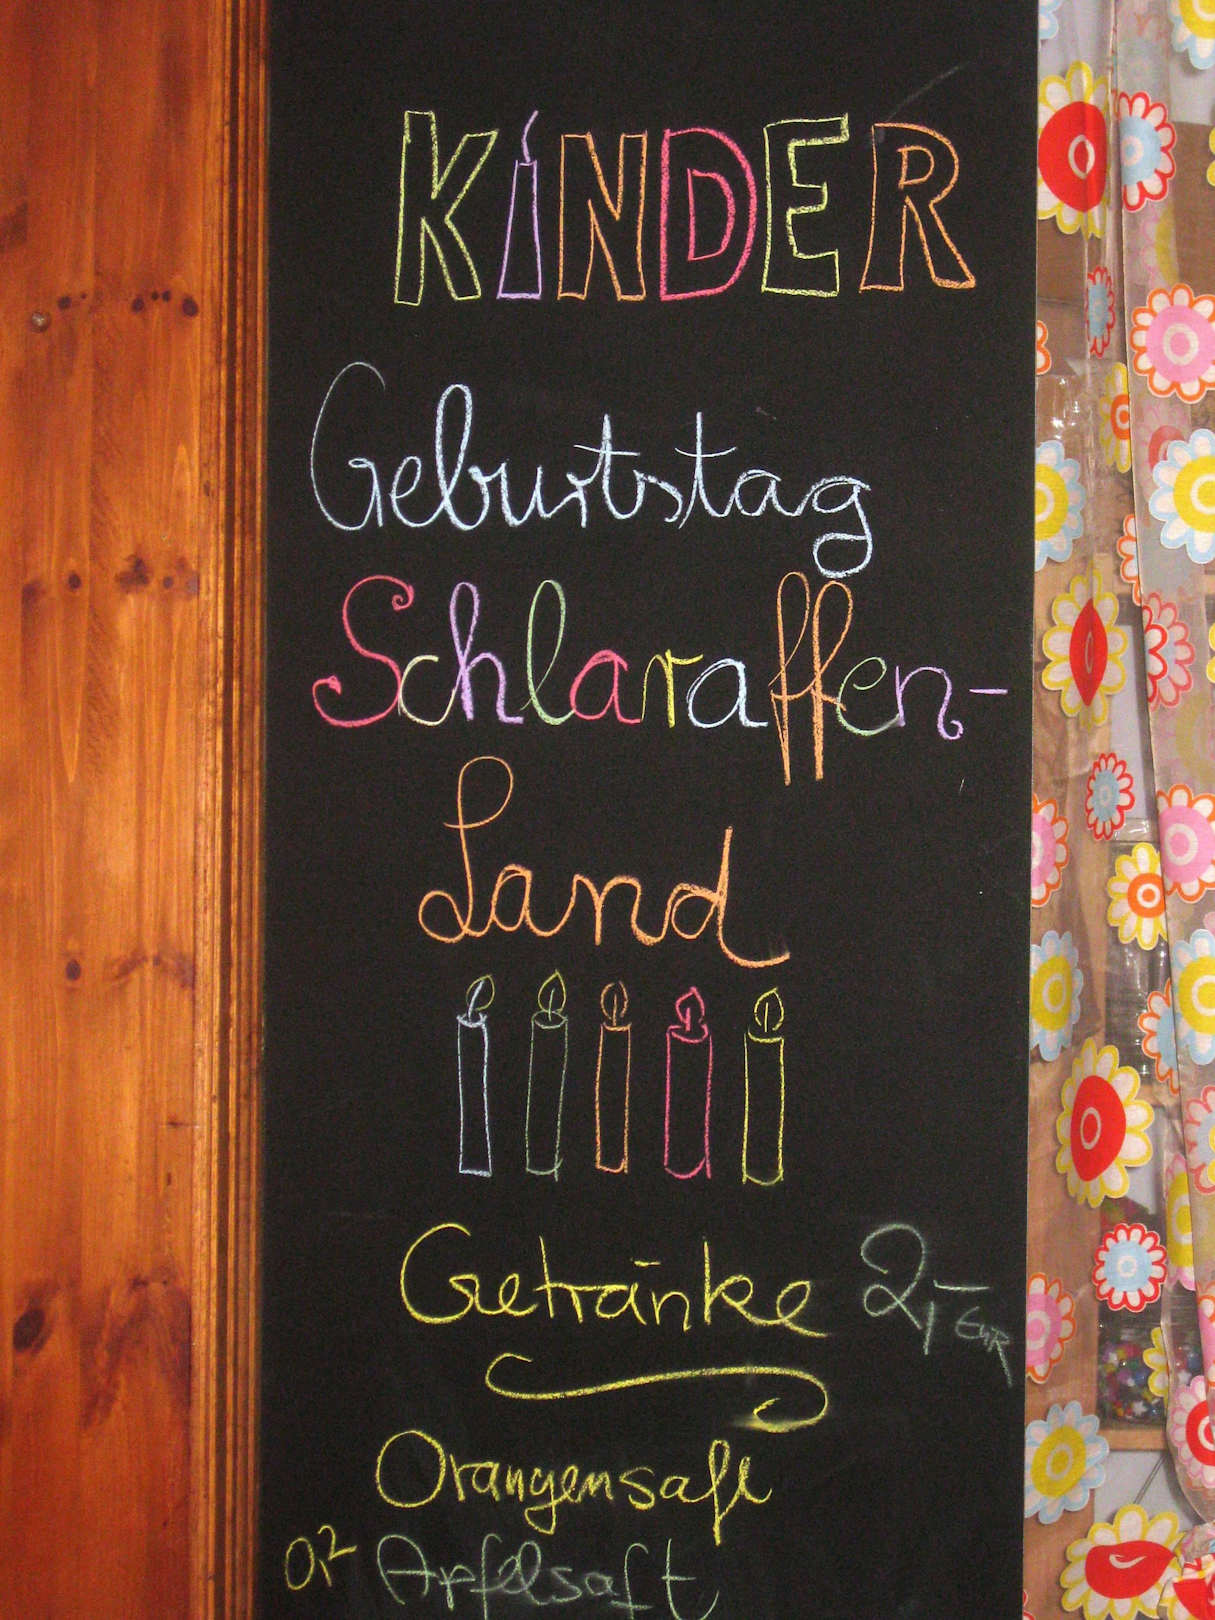 KINDER
Geburtstag
Schlaraffen-
Land
Getränke 2,- EUR
Orangensaft
0,2 Apfelsaft